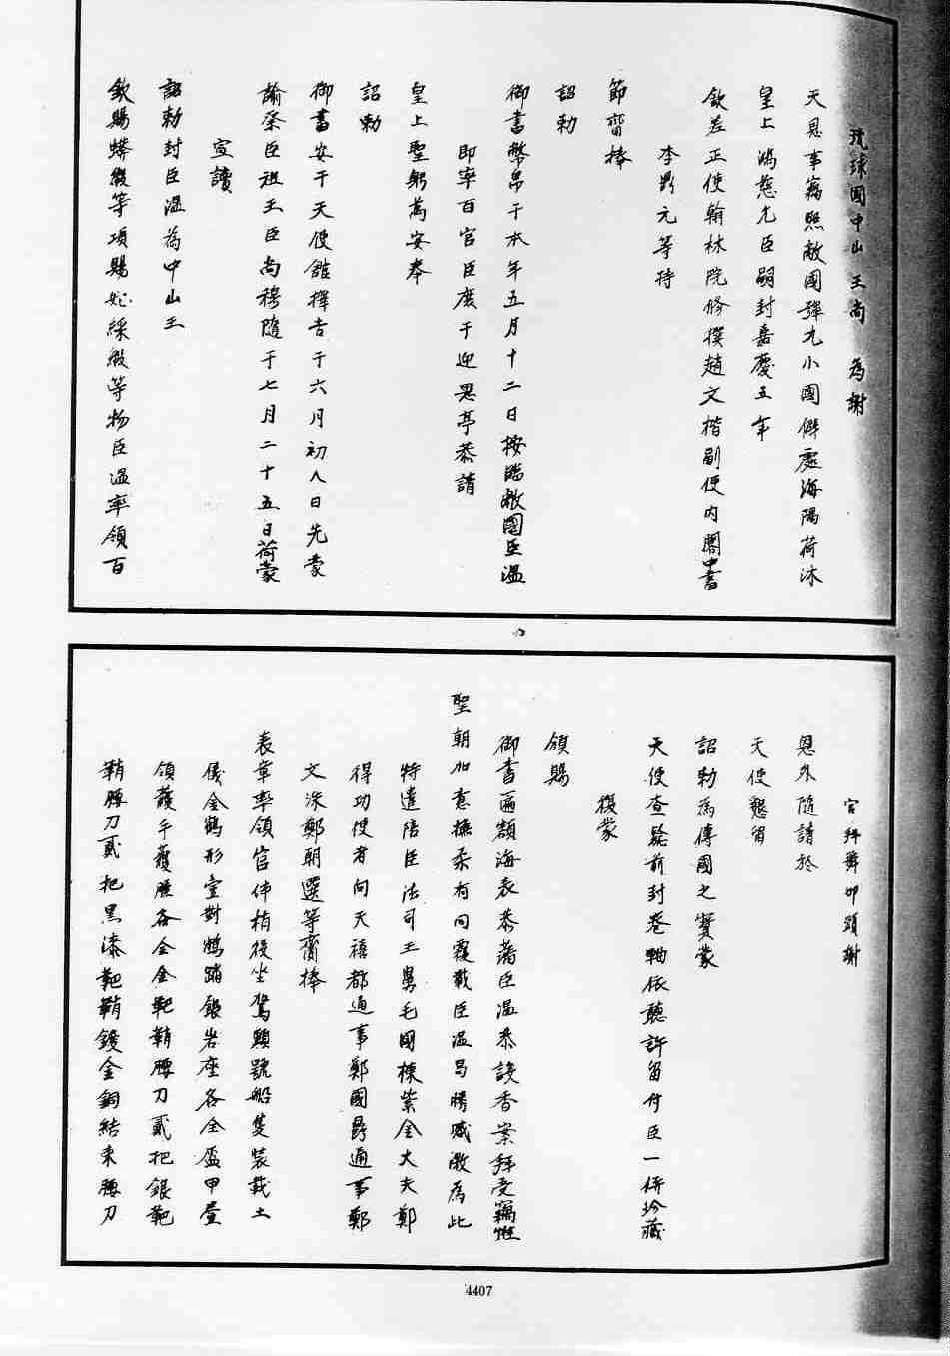 琉球國中山王尚　為謝
天恩事竊照敝國彈丸小國僻處海隅荷沐
皇上鴻慈允臣嗣封嘉慶五年
欽差正使翰林院修撰趙文楷副使內閣中書
李鼎元等持
節齎捧
詔勅
御書幣帛于本年五月十二日按臨敝國臣溫
即率百官臣庶于迎恩亭恭請
皇上聖躬萬安奉
詔勅
御書安于天使館擇吉于六月初八日先蒙
諭祭臣祖王臣尚穆隨于七月二十五日荷蒙
宣讀
詔勅封臣溫為中山王
欽賜蟒緞等項賜妃綵緞等物臣溫率領百
官拜舞叩頭謝
恩外隨請於
天使懇留
詔勅為傳國之寶蒙
天使查驗前封卷軸依聽許留付臣一併珍藏
復蒙
頒賜
御書匾額海表恭藩臣溫恭設香案拜受竊惟
聖朝加意撫柔有同覆載臣溫曷勝感激為此
特遣陪臣法司王舅毛國棟紫金大夫鄭
得功使者向天禧都通事鄭國爵通事鄭
文洙鄭朝選等齎捧
表章率領官伴梢役坐駕頭號船隻裝載土
儀金鶴形壹對鶴踏銀岩座各全盔甲壹
領護手護臁各全金靶鞘腰刀貳把銀靶
鞘腰刀貳把黑漆靶鞘鍍金銅結束腰刀
4407